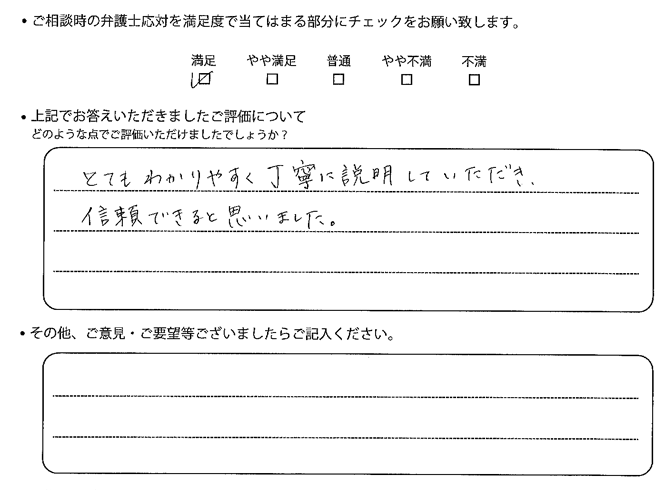 ・ご相談時の弁護士応対を満足度で当てはまる部分にチェックをお願い致します。
満足 やや満足 普通 やや不満 不満
・上記でお答えいただきましたご評価について
どのような点でご評価いただけましたでしょうか？
とてもわかりやすく丁寧に説明していただき、
信頼できると思いました。
・その他、ご意見・ご要望等ございましたらご記入ください。